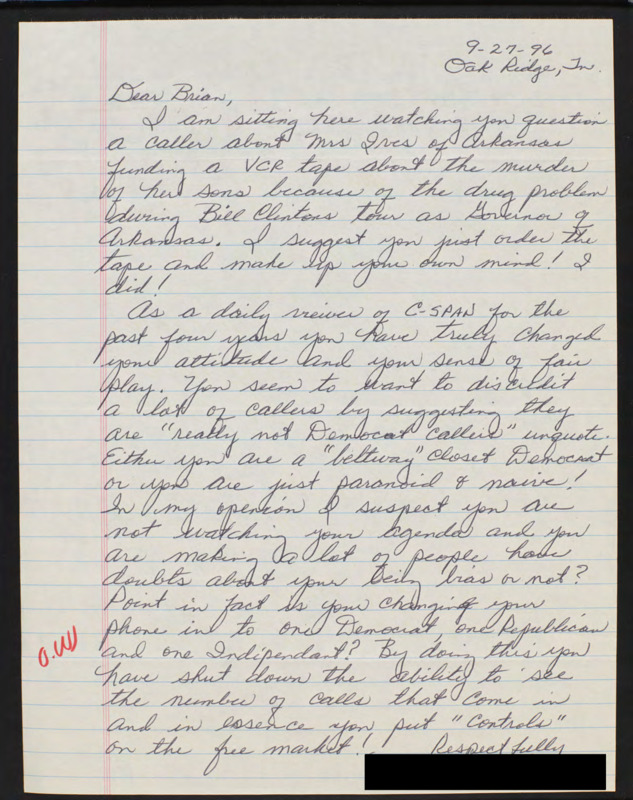 9-27-96
Oak Ridge, Tn.
Dear Brian,
I am sitting here watching you question
a caller about Mrs Ives of Arkansas
funding a VCR tape about the murder
of her sons because of the drug problem
during Bill Clintons tour as Governor of
Arkansas. I suggest you just order the
tape and make up your own mind! I
did!
As a daily viewer of C-SPAN for the
past four years you have truly changed
your attitude and your sense of fair
play. You seem to want to discredit
a lot of callers by suggesting they
are "really not Democrat callers" unquote.
Either you are a "beltway" closet Democrat
or you are just paranoid & naive!
In my openion I suspect you are
not watching your agenda and you
are making a lot of people have
doubts about your being bias or not?
Point in fact is your changing your
phone in to one Democrat, one Republican
and one Indipendant? By doing this you
have shut down the ability to see
the number of calls that come in
and in essence you put "controls"
on the free market!
Respectfully
O.W